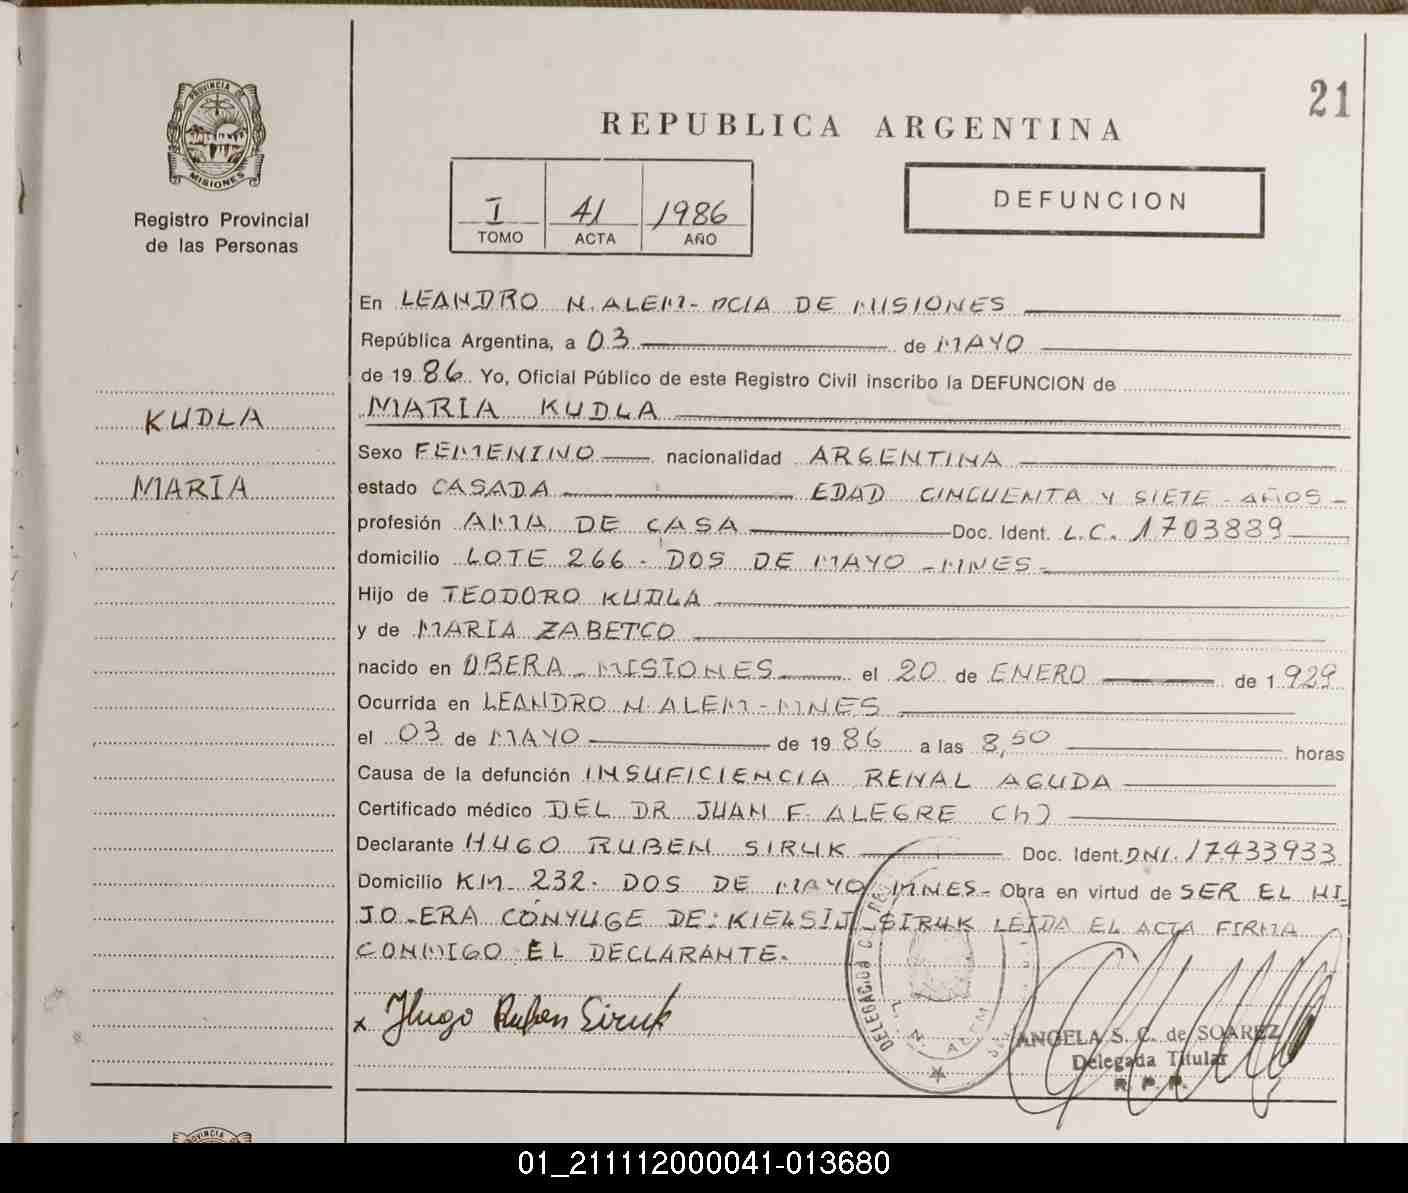 21
REPUBLICA ARGENTINA
PROVINCIA DE
MISIONES
Registro Provincial
de las Personas
DEFUNCION
I 41 1986
TOMO ACTA AÑO
KUDLA
MARIA
En LEANDRO N. ALEM - PCIA DE MISIONES
República Argentina, a 03 de MAYO
de 1986. Yo, Oficial Público de este Registro Civil inscribo la DEFUNCION de
MARIA KUDLA
Sexo FEMENINO nacionalidad ARGENTINA
estado CASADA EDAD CINCUENTA Y SIETE - AÑOS -
profesión AMA DE CASA Doc. Ident. L.C. 1703889
domicilio LOTE 266 - DOS DE MAYO - MNES -
Hijo de TEODORO KUDLA
y de MARIA ZABETCO
nacido en OBERA - MISIONES el 20 de ENERO de 1929
Ocurrida en LEANDRO N. ALEM - MNES
el 03 de MAYO de 1986 a las 8,50 horas
Causa de la defunción INSUFICIENCIA RENAL AGUDA
Certificado médico DEL DR JUAN F. ALEGRE (h)
Declarante HUGO RUBEN SIRUK Doc. Ident. DNI. 17433933
Domicilio KM - 232 - DOS DE MAYO MNES - Obra en virtud de SER EL HI_
JO - ERA CÓNYUGE DE: KIELSIJ - SIRUK LEIDA EL ACTA FIRMA
CONMIGO EL DECLARANTE.
x Hugo Ruben Siruk
DELEGACION
L. N. ALEM
ANGELA S. C. de SOAREZ
Delegada Titular
R. P. P.
PROVINCIA
01_211112000041-013680